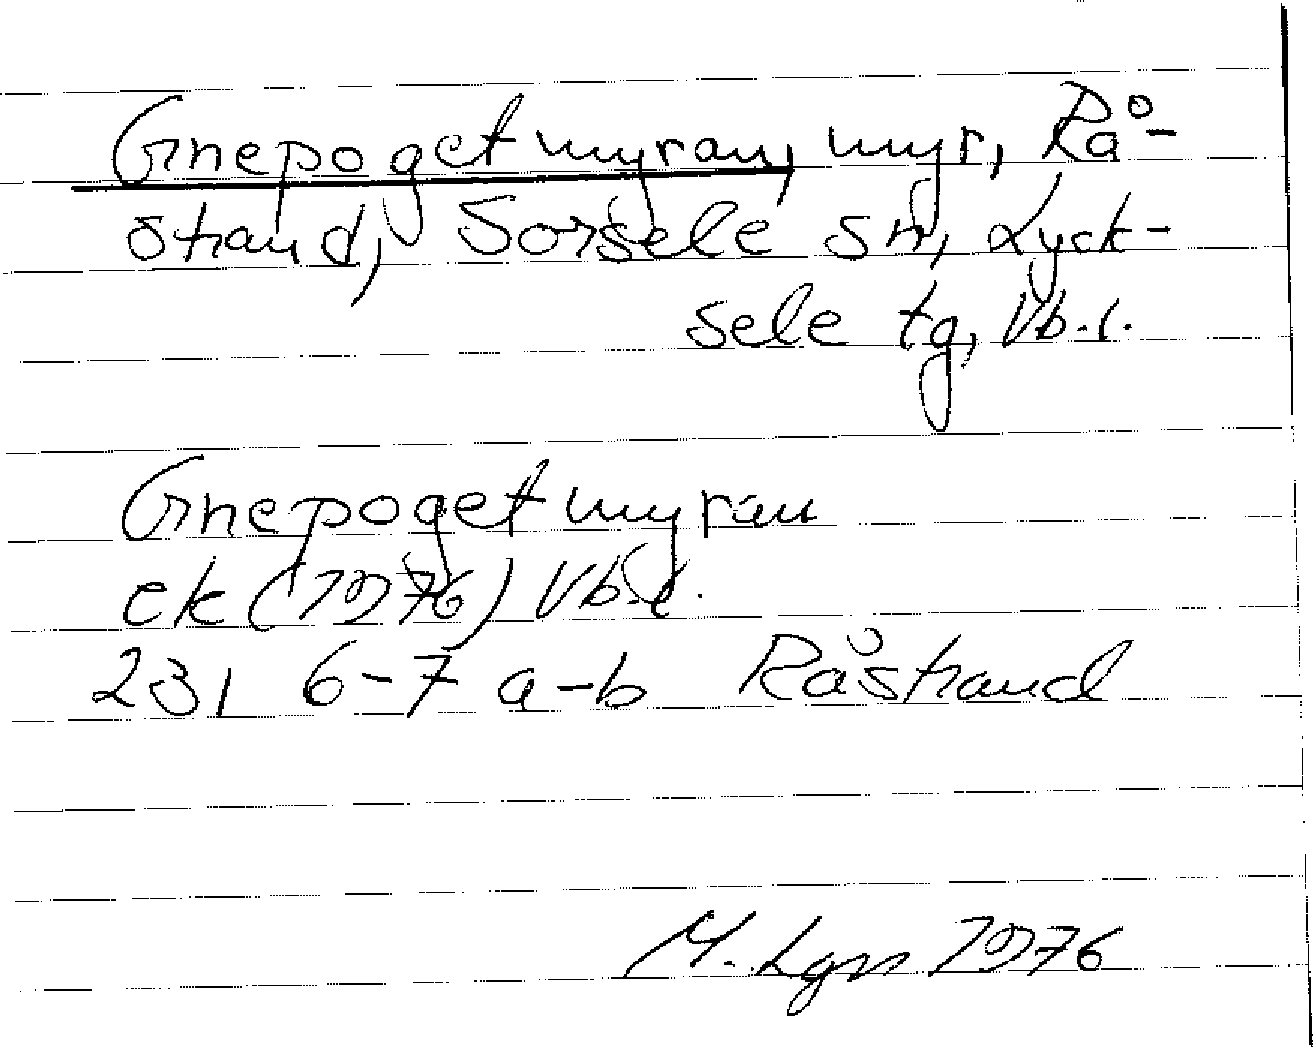 Gnepogetmyran, myr, Rå-
strand, Sorsele sn, Lyck-
sele tg, Vb.l.
Gnepogetmyran
ek (1976) Vb.l.
231 6-7 a-b Råstrand
M. Lgn 1976